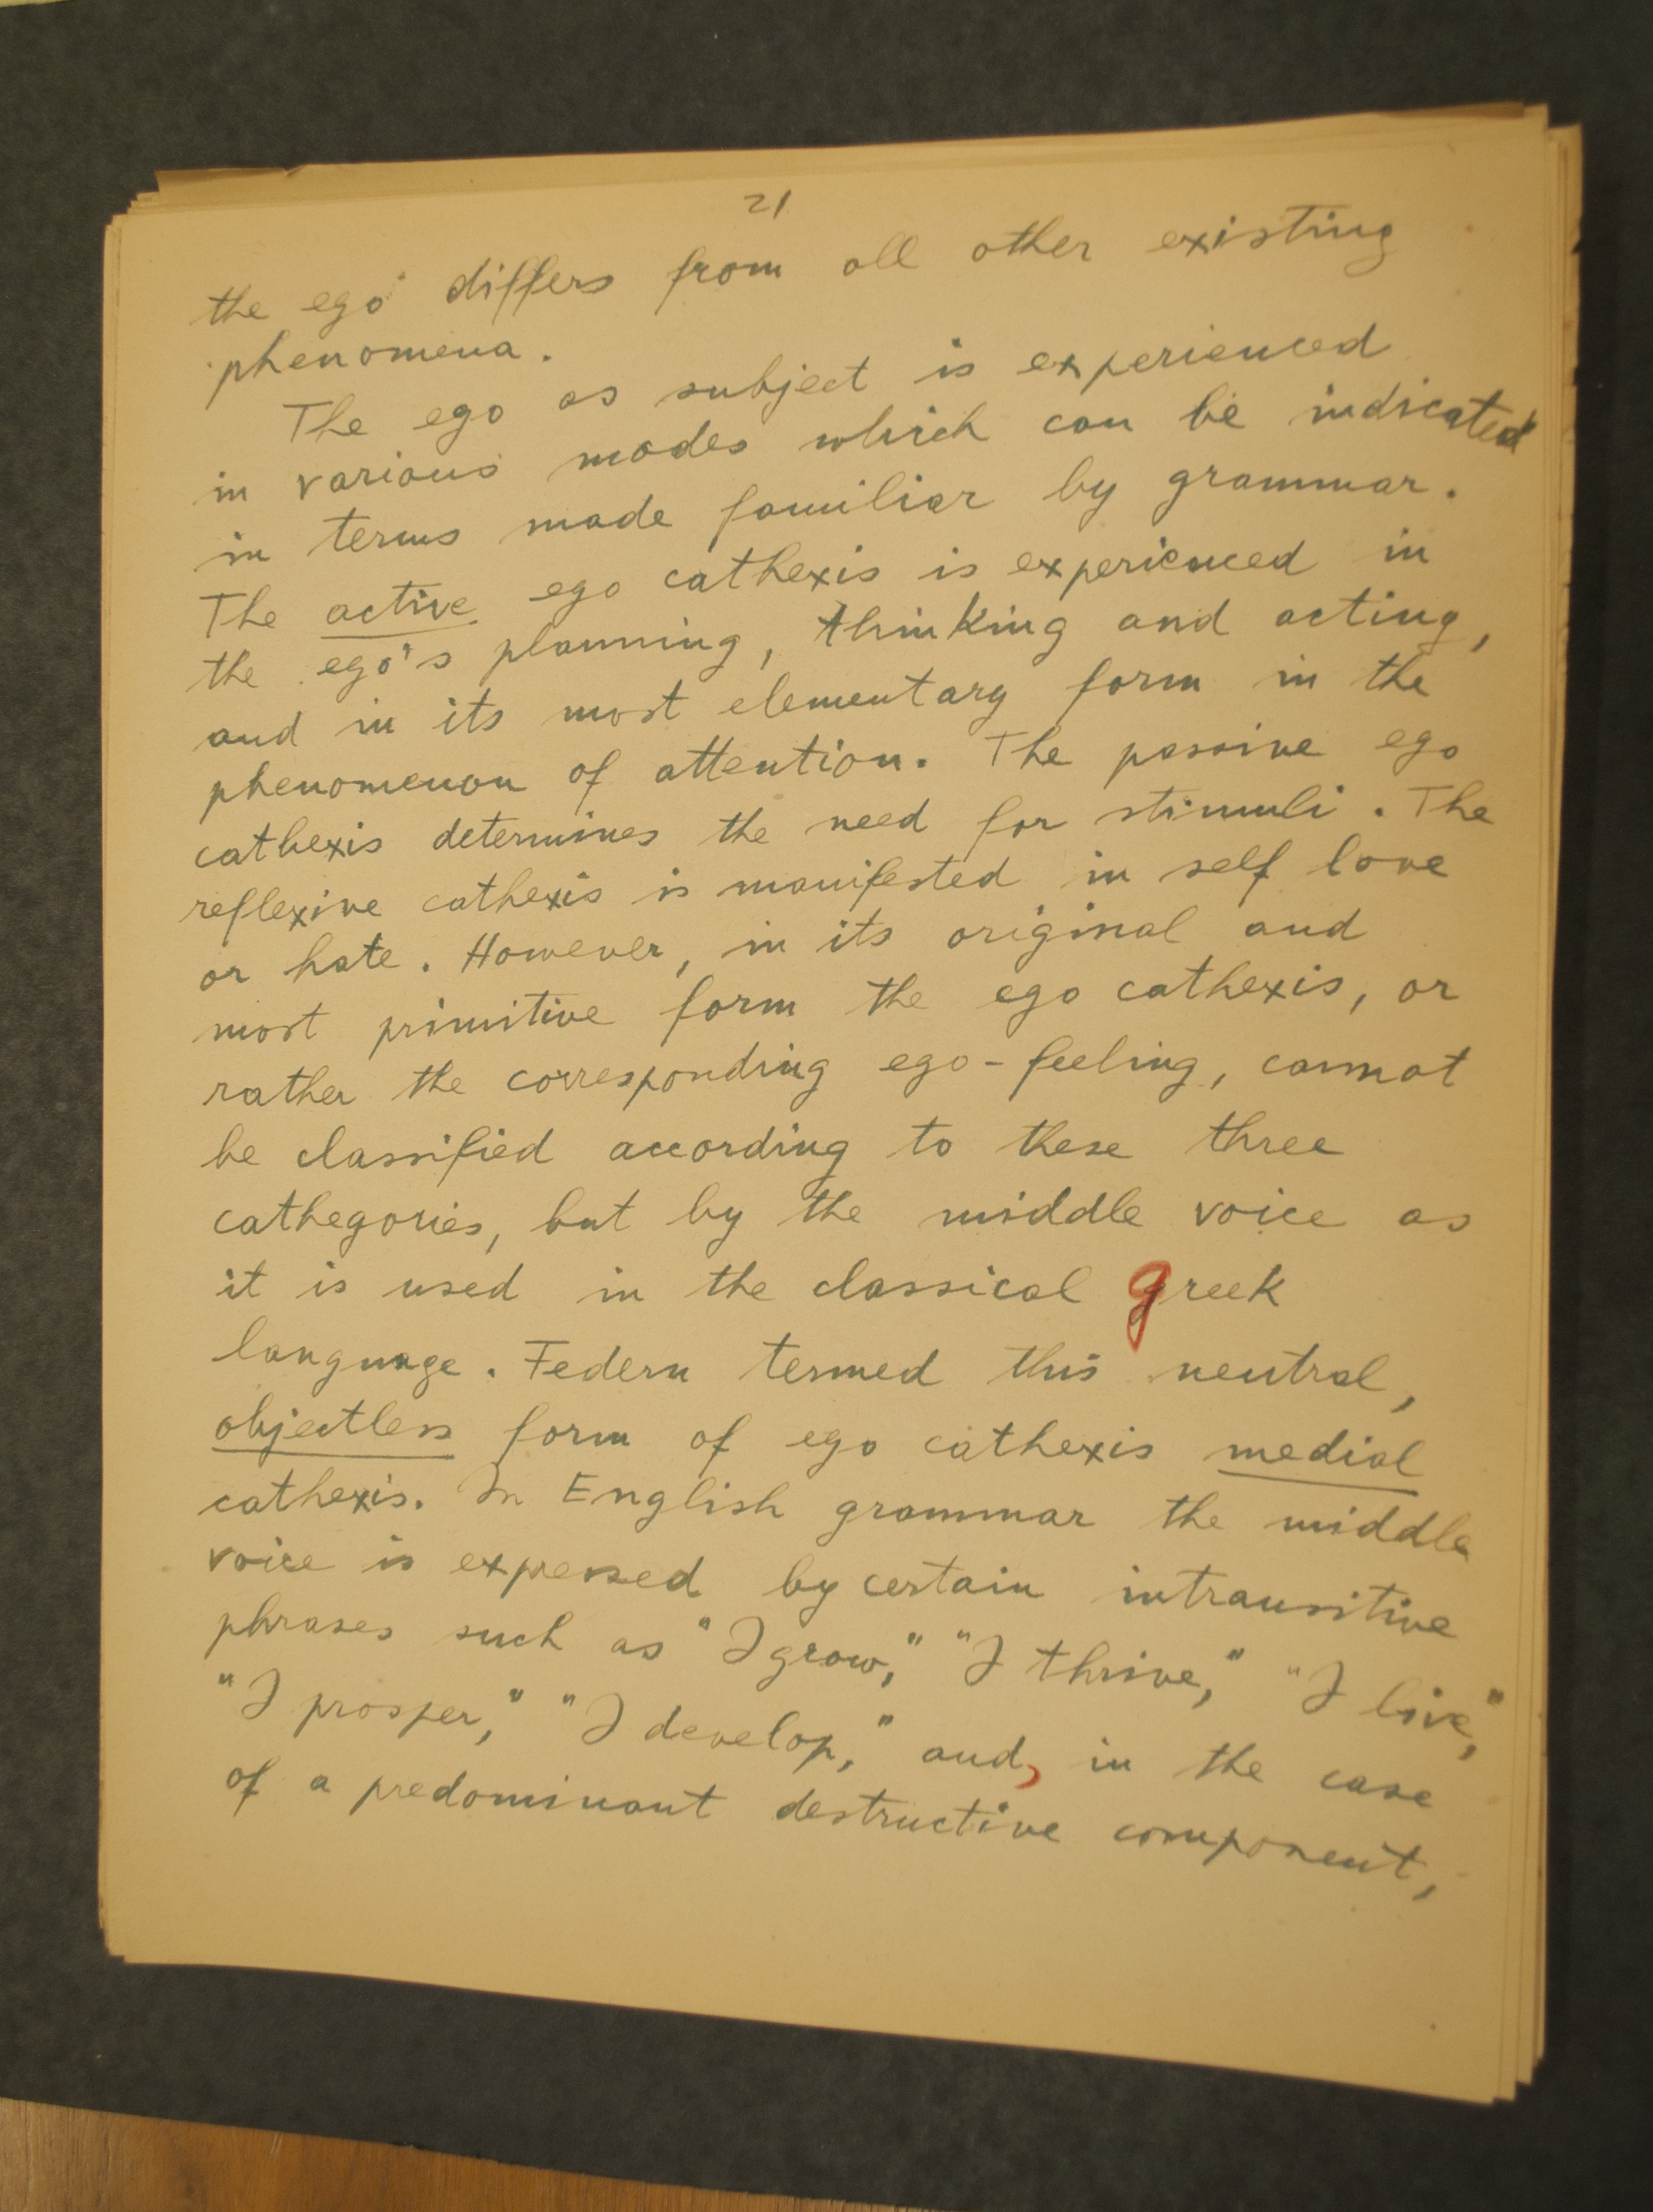 21
the ego differs from all other existing
phenomena.
The ego as subject is experienced
in various modes which can be indicated
in terms made familiar by grammar.
The active ego cathexis is experienced in
the ego's planning, thinking and acting,
and in its most elementary form in the
phenomenon of attention. The passive ego
cathexis determines the need for stimuli. The
reflexive cathexis is manifested in self love
or hate. However, in its original and
most primitive form the ego cathexis, or
rather the corresponding ego-feeling, cannot
be classified according to these three
cathegories, but by the middle voice as
it is used in the classical greek
language. Federn termed this neutral,
objectless form of ego cathexis medial
cathexis. In English grammar the middle
voice is expressed by certain intransitive
phrases such as "I grow," "I thrive," "I live,"
"I prosper," "I develop," and, in the case
of a predominant destructive component,